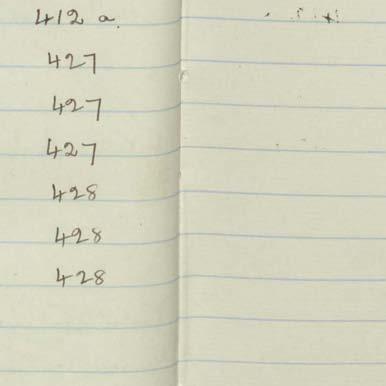 412 a.
427
427
427
428
428
428